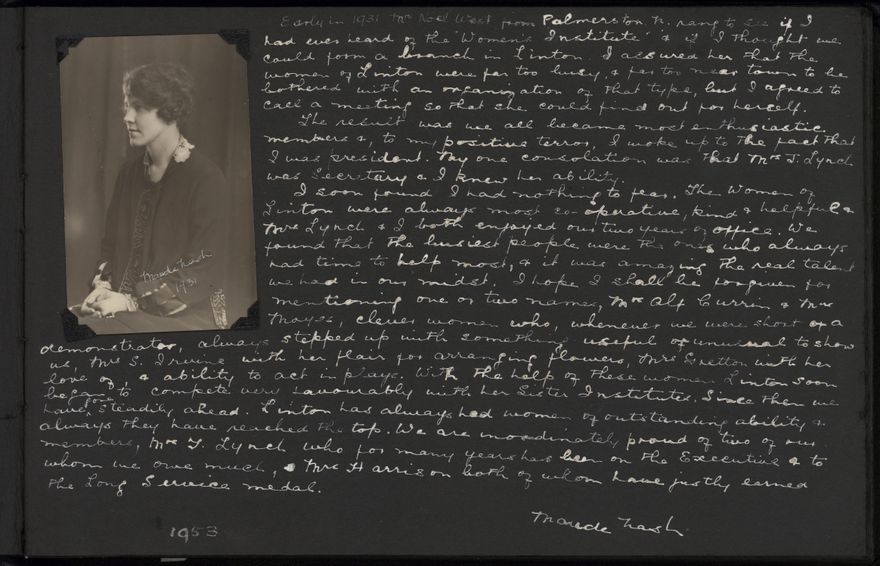 Early in 1931 Mrs Noel West from Palmerston N. rang to see if I
had ever heard of the "Women's Institute" & if I thought we
could form a branch in Linton. I assured her that the
women of Linton were far too busy & far too near town to be
bothered with an organization of that type, but I agreed to
call a meeting so that she could find out for herself.
The result was we all became most enthusiastic
members &, to my positive terror, I woke up to the fact that
I was president. My one consolation was that Mrs T. Lynch
was Secretary & I knew her ability.
I soon found I had nothing to fear. The Women of
Linton were always most co-operative, kind & helpful &
Mrs Lynch & I both enjoyed our two years of office. We
found that the busiest people were the ones who always
had time to help most, & it was amazing the real talent
we had in our midst. I hope I shall be forgiven for
mentioning one or two names, Mrs Alf Currin & Mrs
Mayes, clever women who, whenever we were short of a
demonstrator, always stepped up with something useful or unusual to show
us, Mrs S. Irvine with her flair for arranging flowers, Mrs Gretton with her
love of, & ability to act in plays. With the help of these women Linton soon
began to compete very favourably with her Sister Institutes. Since then we
have gone steadily ahead. Linton has always had women of outstanding ability &
always they have reached the top. We are inordinately proud of two of our
members, Mrs T. Lynch who for many years has been on the Executive & to
whom we owe much, & Mrs Harrison both of whom have justly earned
the Long Service medal.
1953